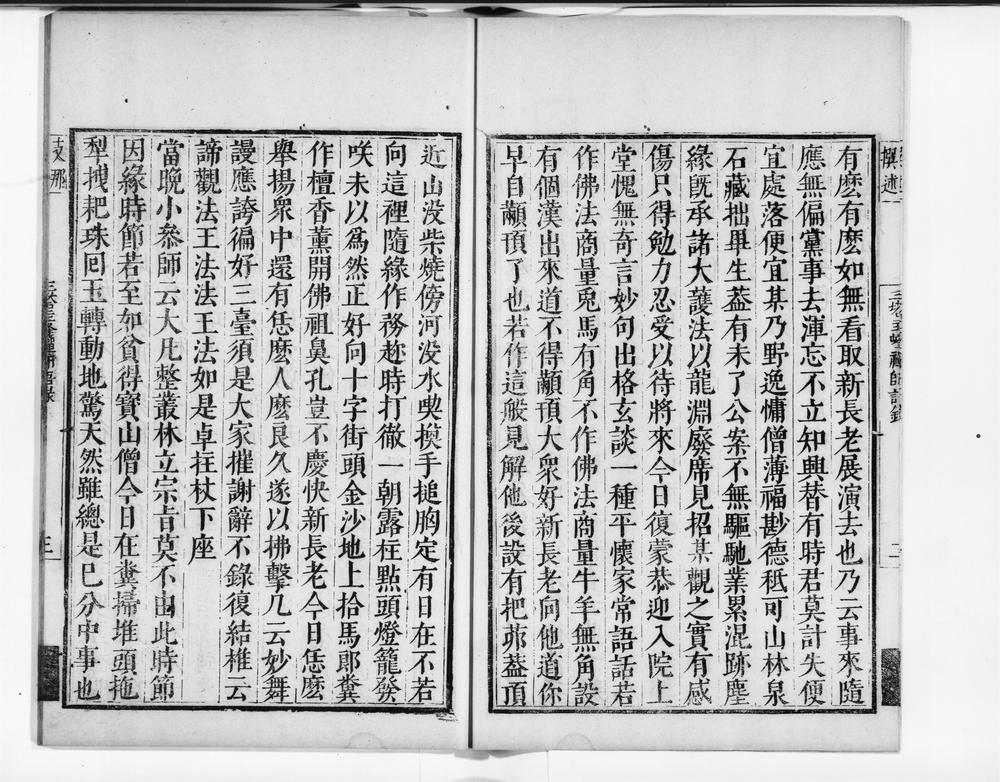 有麽有麽如無看取新長老展演去也乃云事來隨
應無偏黨事去渾忘不立知興替有時君莫計失便
宜處落便宜某乃野逸慵僧薄福尠德秪可山林泉
石藏拙畢生葢有未了公案不無驅馳業累混跡塵
緣旣承諸大護法以龍淵廢席見招某覩之實有感
傷只得勉力忍受以待將來今日復蒙恭迎入院上
堂愧無奇言妙句出格玄談一種平懷家常語話若
作佛法商量兎馬有角不作佛法商量牛羊無角設
有個漢出來道不得顢頇大衆好新長老向他道你
早自顢頇了也若作這般見解他後設有把茆葢頂
近山没柴燒傍河没水喫換手搥胸定有日在不若
向這裡隨緣作務趂時打徹一朝露柱點頭燈籠發
咲未以爲然正好向十字街頭金沙地上拾馬郎糞
作檀香薰開佛祖鼻孔豈不慶快新長老今日恁麽
舉揚衆中還有恁麽人麽良久遂以拂擊几云妙舞
謾應誇徧好三臺須是大家摧謝辭不錄復結椎云
諦觀法王法法王法如是卓拄杖下座
當晚小參師云大凡整叢林立宗旨莫不由此時節
因緣時節若至如貧得寶山僧今日在糞掃堆頭拖
犁拽耙珠囘玉轉動地驚天然雖總是已分中事也
撰述
二
支那
三